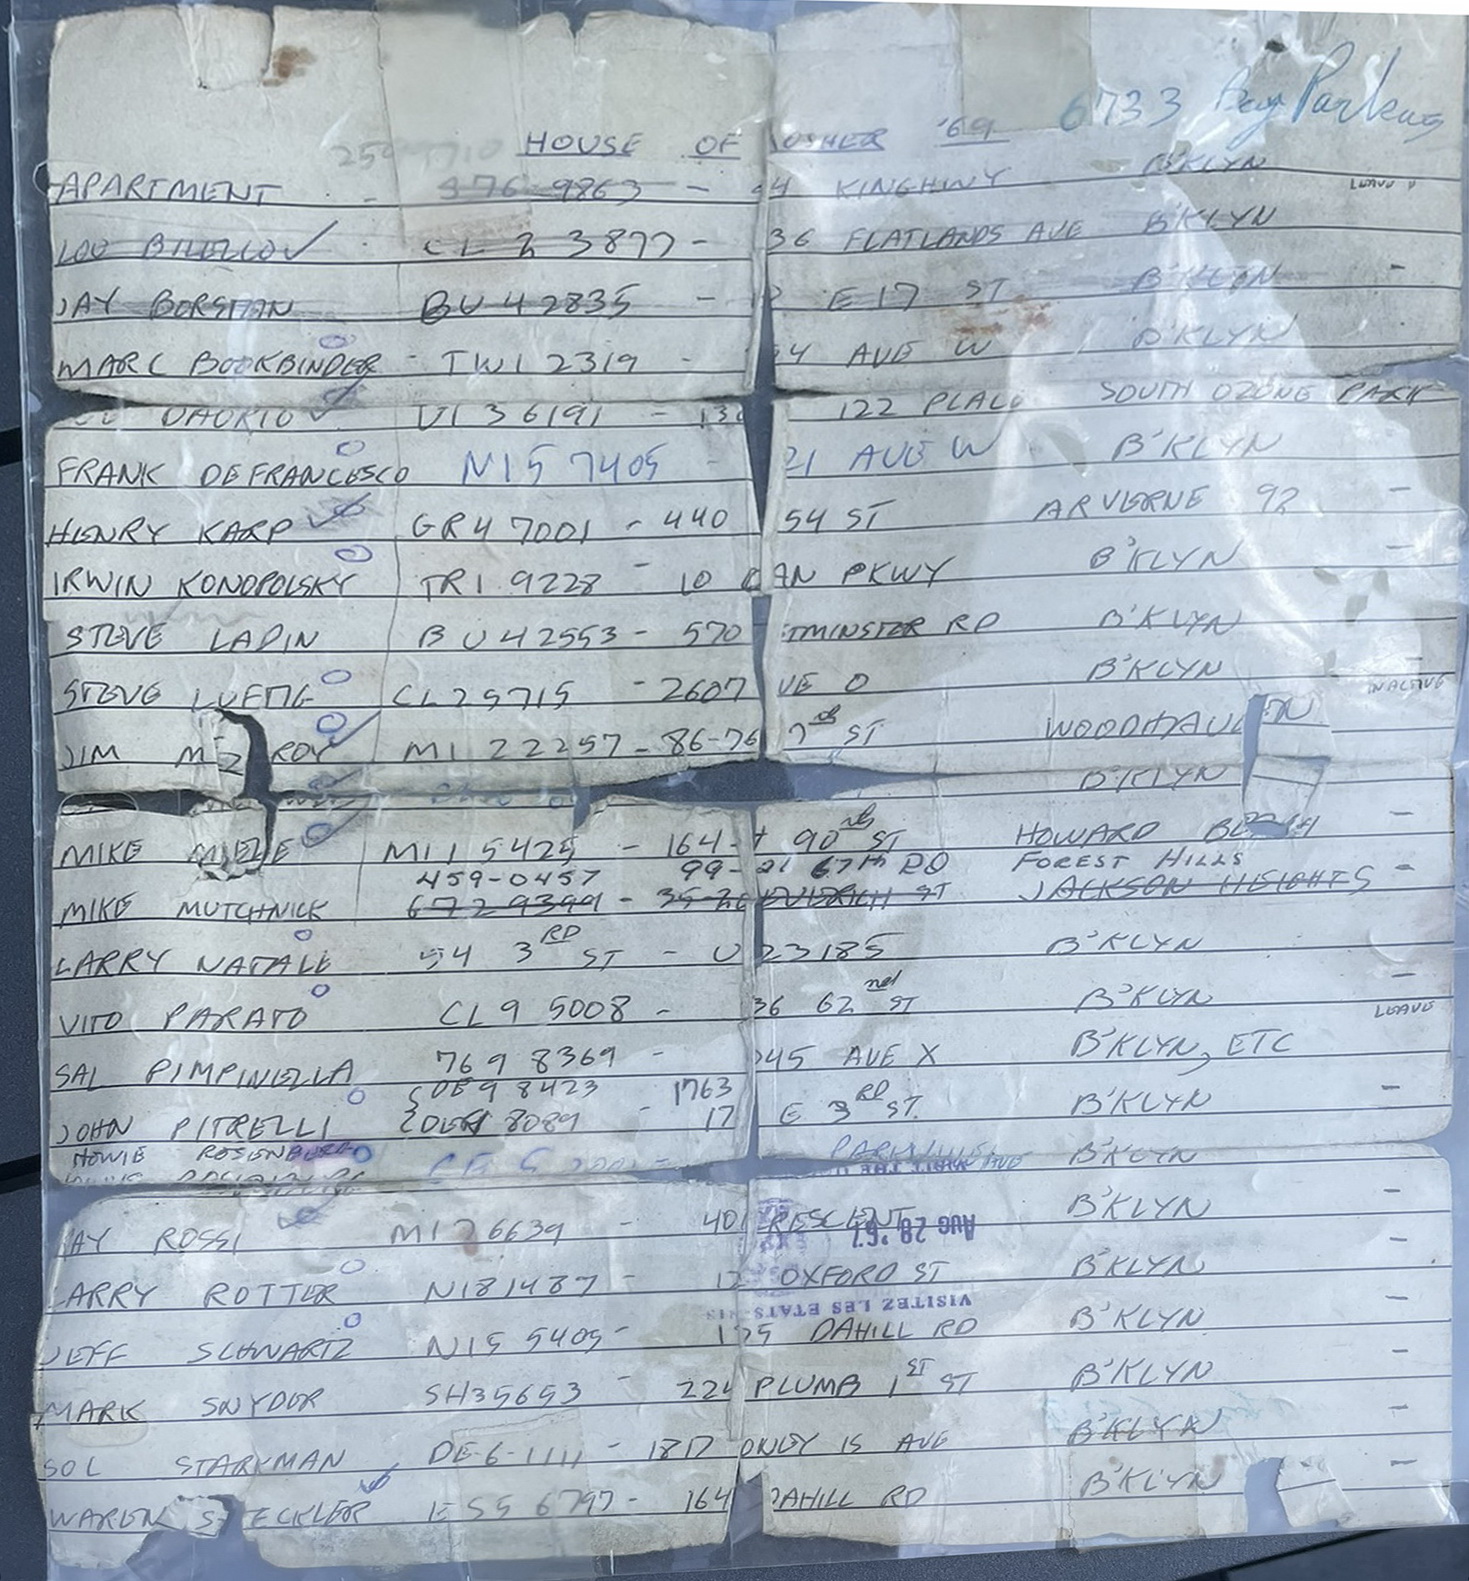 6733 Bay Parkway
HOUSE OF OSHER '69
APARTMENT - 376-9863 - 4 KINGHWY B'KLYN LEAVE
LOU BILELLO CL 2 3877 - 36 FLATLANDS AVE B'KLYN
JAY BORSTAN BU 4 2835 - E 17 ST B'KLYN -
MARC BOOKBINDER - TW1 2319 - 54 AVE W B'KLYN
DAURIO VI 3 6191 - 13 122 PLACE SOUTH OZONE PARK
FRANK DEFRANCESCO NI 5 7405 - 21 AVE W B'KLYN
HENRY KARP GR4 7001 - 440 54 ST ARVERNE 92 -
IRWIN KONOPOLSKY TR1 9228 - 10 AN PKWY B'KLYN -
STEVE LAPIN BU42553 - 570 ETMINSTER RD B'KLYN
STEVE LUFTIG CL25715 - 2607 VE O B'KLYN - INACTIVE
JIM M ROY MI 22257 - 86-76 ST WOODHAVEN
B'KLYN
MIKE MIELE MI 1 5425 - 164- 90 ST HOWARD BEACH -
459-0457 99-21 67th RD FOREST HILLS
MIKE MUTCHNICK 672 9399 - 35-20 ST JACKSON HEIGHTS -
LARRY NATALE 54 3RD ST - U 23185 B'KLYN
VITO PARATO CL9 5008 - 36 62nd ST B'KLYN - LEAVE
SAL PIMPINELLA 769 8369 - 045 AVE X B'KLYN, ETC
DE9 8423 1763
JOHN PITRELLI 8089 - 17 E 3RD ST. B'KLYN -
HOWIE ROSENBERG B'KLYN
JAY ROSSI MI76639 - 40 RESCENT B'KLYN -
AUG 28 '67
LARRY ROTTER NI81487 - OXFORD ST B'KLYN -
VISITEZ LES ETATS-UNIS
JEFF SCHWARTZ NI5 5405 - DAHILL RD B'KLYN -
MARK SNYDER SH35653 - 22 PLUMB 1ST ST B'KLYN -
SOL STARKMAN DE-6-1111 - 1817 ONLEY IS AVE B'KLYN -
WAREN S ECKLER ES5 6797 - 164 DAHILL RD B'KLYN -